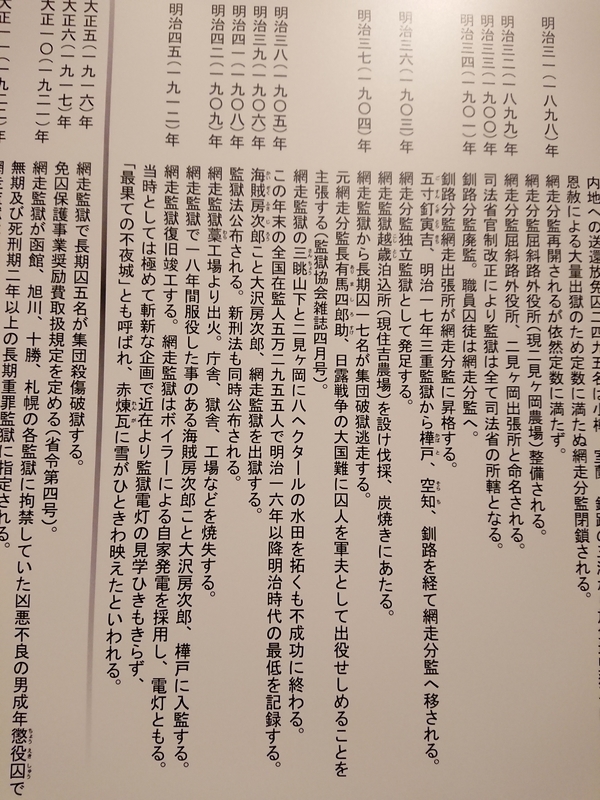 内地への送還放免囚二四九五名は小樽、室蘭、釧路の三港
恩赦による大量出獄のため定数に満たぬ網走分監閉鎖される。
明治三一(一八九八)年 網走分監再開されるが依然定数に満たず。
網走分監屈斜路外役所(現二見ヶ岡農場)整備される。
明治三二(一八九九)年 網走分監屈斜路外役所、二見ヶ岡出張所と命名される。
明治三三(一九〇〇)年 司法省官制改正により監獄は全て司法省の所轄となる。
明治三四(一九〇一)年 釧路分監廃監。職員囚徒は網走分監へ。
釧路分監網走出張所が網走分監に昇格する。
五寸釘寅吉、明治一七年三重監獄から樺戸、空知、釧路を経て網走分監へ移される。
明治三六(一九〇三)年 網走分監独立監獄として発足する。
網走監獄越歳泊込所(現住吉農場)を設け伐採、炭焼きにあたる。
明治三七(一九〇四)年 網走監獄から長期囚一七名が集団破獄逃走する。
元網走分監長有馬四郎助、日露戦争の大国難に囚人を軍夫として出役せしめることを
主張する(監獄協会雑誌四月号)。
網走監獄の三眺山下と二見ヶ岡に八ヘクタールの水田を拓くも不成功に終わる。
明治三八(一九〇五)年 この年末の全国在監人五万二九五五人で明治一六年以降明治時代の最低を記録する。
明治三九(一九〇六)年 海賊房次郎こと大沢房次郎、網走監獄を出獄する。
明治四一(一九〇八)年 監獄法公布される。新刑法も同時公布される。
明治四二(一九〇九)年 網走監獄藁工場より出火。庁舎、獄舎、工場などを焼失する。
網走監獄で一八年間服役した事のある海賊房次郎こと大沢房次郎、樺戸に入監する。
明治四五(一九一二)年 網走監獄復旧竣工する。網走監獄はボイラーによる自家発電を採用し、電灯ともる。
当時としては極めて斬新な企画で近在より監獄電灯の見学ひきもきらず、
「最果ての不夜城」とも呼ばれ、赤煉瓦に雪がひときわ映えたといわれる。
大正五(一九一六)年 網走監獄で長期囚五名が集団殺傷破獄する。
大正六(一九一七)年 免囚保護事業奨励費取扱規定を定める(省令第四号)。
大正一〇(一九二一)年 網走監獄が函館、旭川、十勝、札幌の各監獄に拘禁していた凶悪不良の男成年懲役囚で
無期及び死刑期二年以上の長期重罪監獄に指定される。
大正一一(一九二二)年